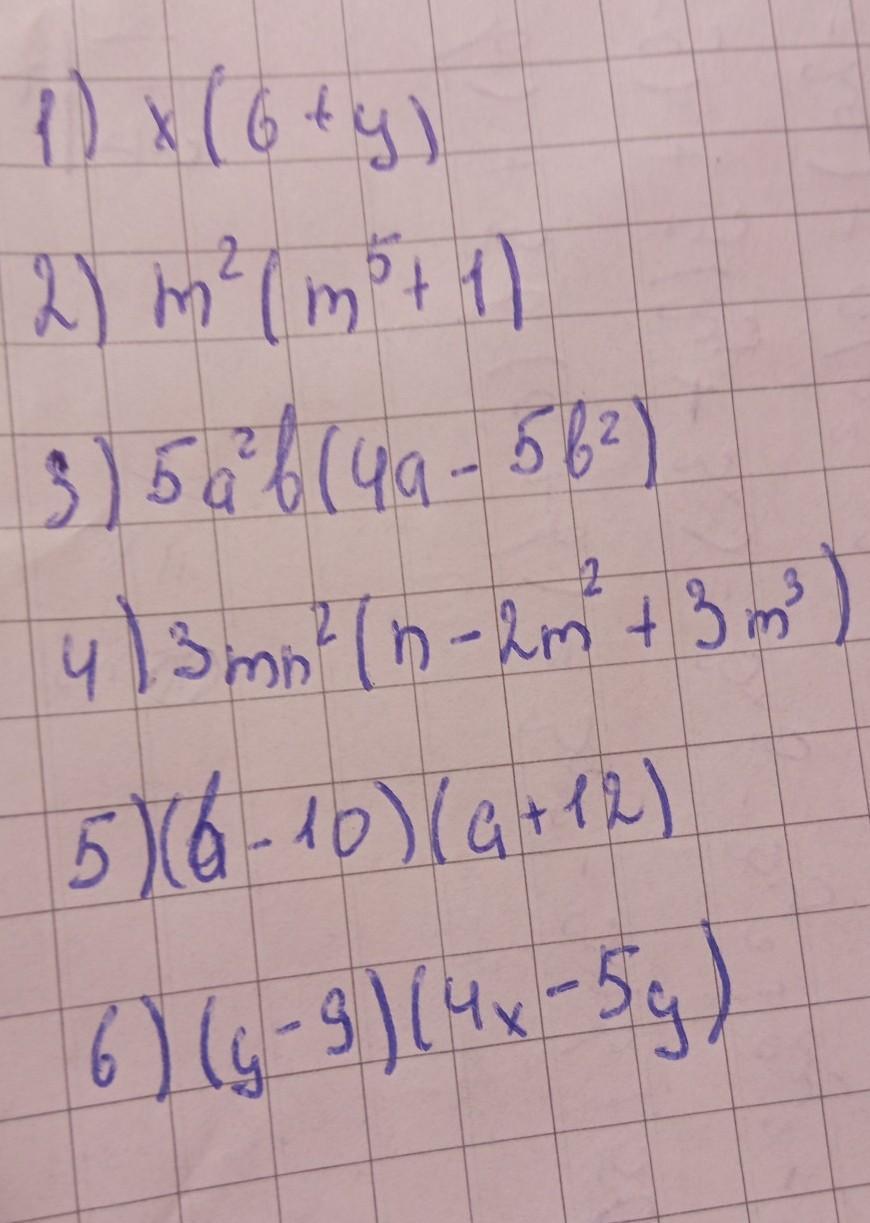 1) x(6+y)
2) m²(m⁵+1)
3) 5a²b(4a-5b²)
4) 3mn²(n-2m²+3m³)
5) (b-10)(a+12)
6) (y-9)(4x-5y)